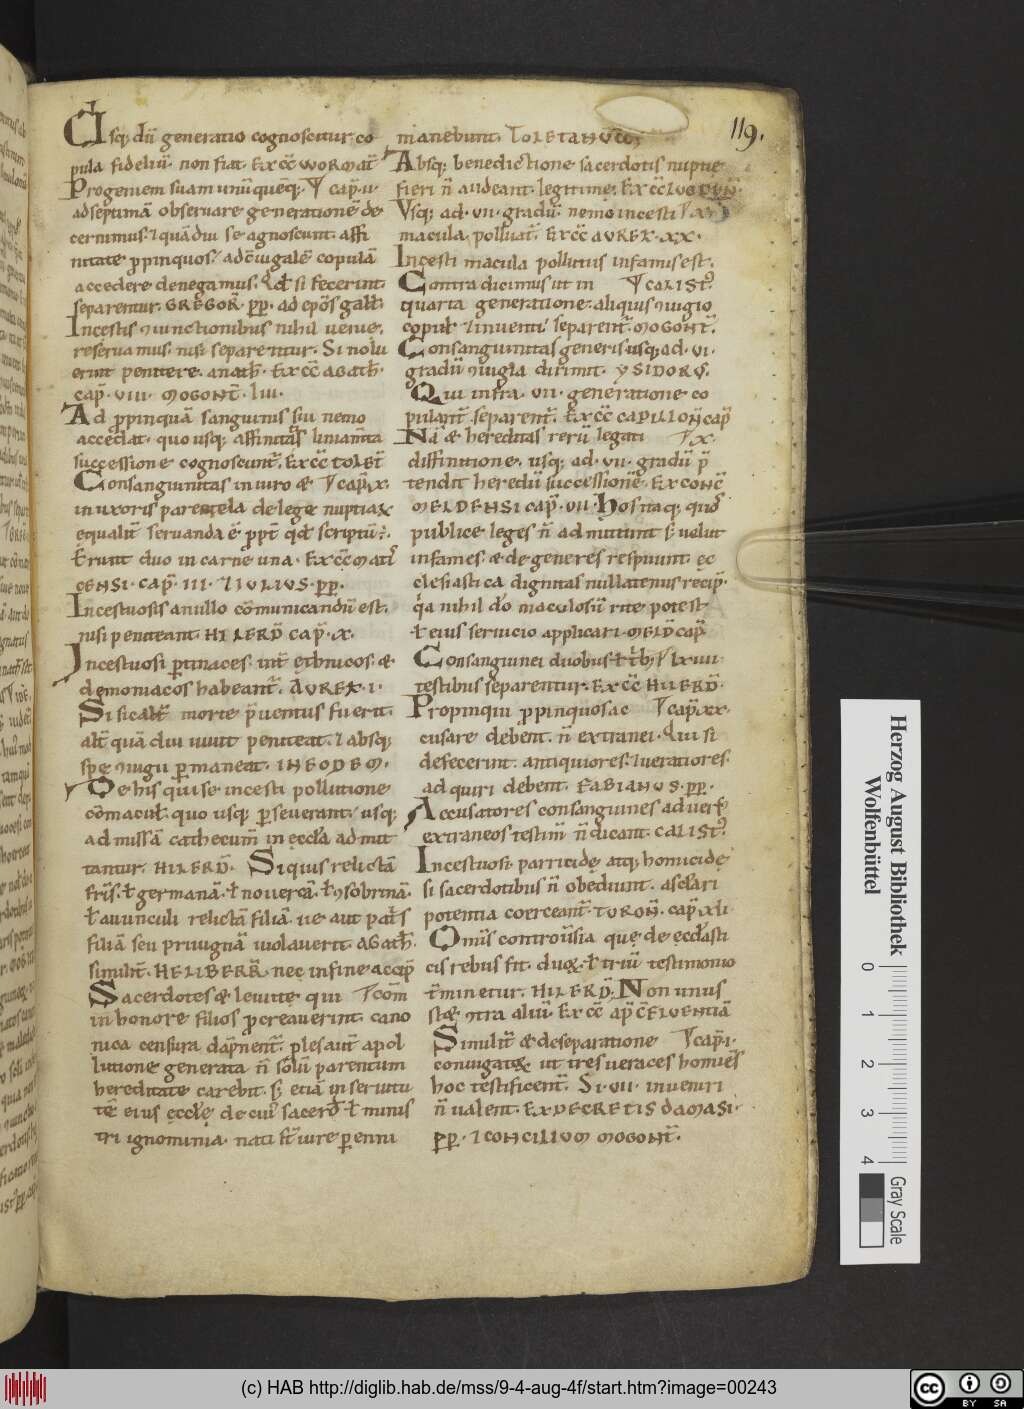 119.
Usq; dū generatio cognoscitur co
pula fideliū. non fiat. EX CC̄ WORMAT̄
Progeniem suam unū quēq; cap̄. II.
ad septimā obseruare generationē de
cernimus. & quādiu se agnoscunt affi
nitate p̄pinquos. ad c̄iugalē copulā
accedere denegamus. Qd̄ si fecerint
separentur. GREGOR̄ PP̄. ad ep̄os gall̄.
Incestis iunctionibus nihil ueniē
reseruamus. nisi separentur. Si nolu
erint penitere. anath̄. EX CC̄ AGATH̄.
CAP̄. VIII. MOGONT̄. LIII.
Ad p̄pinquā sanguinis sui nemo
accedat. quo usq; affinitatis liniam̄ta
successione cognoscunt̄. EX CC̄ TOLET̄
Consanguinitas in uiro & cap̄. IX.
in uxoris parentela de lege nuptiarū
equalit̄ seruanda ē. p̄pt̄ qd̄ scriptū.
Erunt duo in carne una. EX CC̄ MAT̄
CENSI. CAP̄. III. 7 IULIUS. PP̄.
Incestuosis anullo cōmunicandū est.
nisi peniteant. HILERD̄ CAP̄. X.
Incestuosi p̄tinaces. int̄ ęthnicos. &
demoniacos habeant̄. AUREX. I.
Si sic alt̄ morte p̄uentus fuerit.
alt̄ quā diu uiuit peniteat. & absq;
spe iugii p̄maneat. IN EODEM.
De his qui se incesti pollutione
cōmacul̄. quo usq; p̄seuerant. usq;
ad missā cathecum̄ in eccl̄a admit
tantur. HILERD̄. Siquis relictā
fr̄is. ł germanā. ł nouercā. ł sobrinā.
ł auunculi relictā filiā. ue aut pat̄s
filiā seu priuignā uiolauerit. AGATH̄.
similit̄. HELIBERR̄. nec in fine accip̄
Sacerdotes & leuitę qui com̄
in honore filios p̄creauerint. cano
nica censura dāp̄nent̄. ples aut̄ a pol
lutione generata n̄ solū parentum
hereditate carebit. s; etiā in seruitu
tē eius eccl̄ę de cui' sacerd̄ ł minis
tri ignominia. nati s̄t iure p̄enni
manebunt. TOLETANUM
Absq; benedictione sacerdotis nuptię
fieri n̄ audeant legitime. EX CC̄ LUGDUN̄.
Usq; ad. VII. gradū. nemo incesti
macula polluat̄. EX CC̄ AUREX. XX.
Incesti macula pollutus infamis est.
Contradicimus ut in CALIST̄.
quarta generatione. aliquis iugio
copul̄ & inuenti separent̄. MOGONT̄.
Consanguinitas generis usq; ad. VI.
gradū iugia dirimit. YSIDORUS.
Qui infra. VII. generatione co
pulant̄ separent̄. EX CC̄ CAPILLON̄ CAP̄
Nā & hereditas rerū legati X.
diffinitione. usq; ad. VII. gradū p̄
tendit heredū successionē. EX CONC̄
MELDENSI CAP̄. VII. Hos itaq; quos
publice leges n̄ admittunt s; uelut
infames & degeneres respuunt. ec
clesiastica dignitas nullatenus recip̄.
q̄a nihil d̄o maculosū rite potest
ł eius seruicio applicari. MELD̄ CAP̄
Consanguinei duobus ł trib; LXIIII
testibus separentur. EX CC̄ HILERD̄.
Propinqui p̄pinquos ac cap̄. XX.
cusare debent. n̄ extranei. Qui si
defecerint. antiquiores & ueratiores.
adquiri debent. FABIANUS. PP̄.
Accusatores consanguines aduers̄
extraneos testim̄ n̄ dicant. CALIST̄.
Incestuosi parricidę atq; homicidę
si sacerdotibus n̄ obediunt. a sęlari
potentia coerceant̄. TURON̄. CAP̄. XLI.
Omīs controū̄sia quę de eccl̄iasti
cis rebus fit. duoꝝ. ł triū testimonio
t̄minetur. HILERD̄. Non unus
stet ntra aliū. EX CC̄ AP̄ CELUENTIĀ
Simulit̄ & de separatione cap̄. I.
coniugatoꝝ ut tres ueraces homines
hoc testificent̄. Si. VII. inueniri
n̄ ualent. EX DECRETIS DAMASI.
PP̄. 7 CONCILIUM MOGONT̄.
Herzog August Bibliothek
Wolfenbüttel
0 1 2 3 4
Gray Scale
(c) HAB http://diglib.hab.de/mss/9-4-aug-4f/start.htm?image=00243
cc BY SA